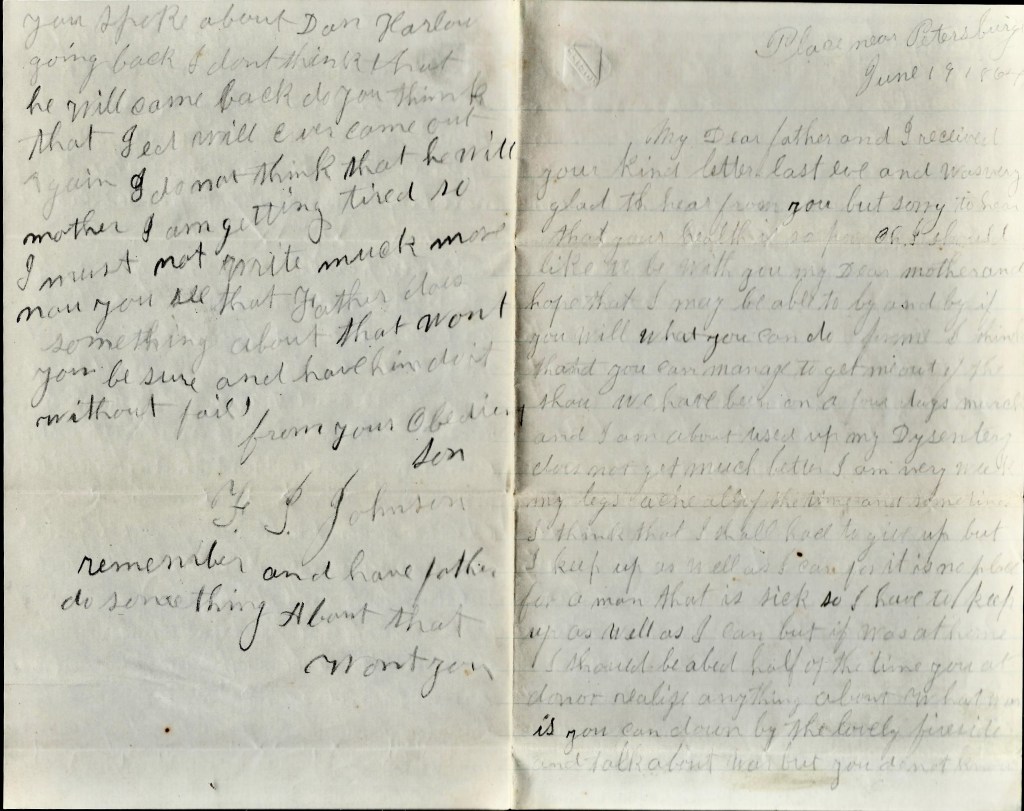 Place near Petersburg
June 19 1864
My Dear father and I received
your kind letter last eve and was very
glad th hear from you but sorry to hear
that your health is so poor Oh I should
like to be with you my Dear mother and
hope that I may be able to by and by if
you will what you can do for me I think
thand you can manage to get me out of the
we have been on a four days march
and I am about used up my Dysentery
does not get much better I am very weak
my legs ache all of the time and sometimes
I think that I shall had to give up but
I keep up as well as I can for it is no place
for a man that is sick so I have to keep
up as well as I can but if was at home
I should be abed half of the time you at
do not realize anything about what war
is you can down by the lovely fireside
and talk about war but you do not know
you spoke about Dan Harlow
going back I dont think that
he will come back do you think
that will ever come out
again I do not think that he will
mother I am getting tired so
I must not write much more
now you see that Father does
something about that wont
you be sure and have him do it
without fail
from your Obedient
Son
F. S. Johnson
remember and have father
do something About that
Wont you